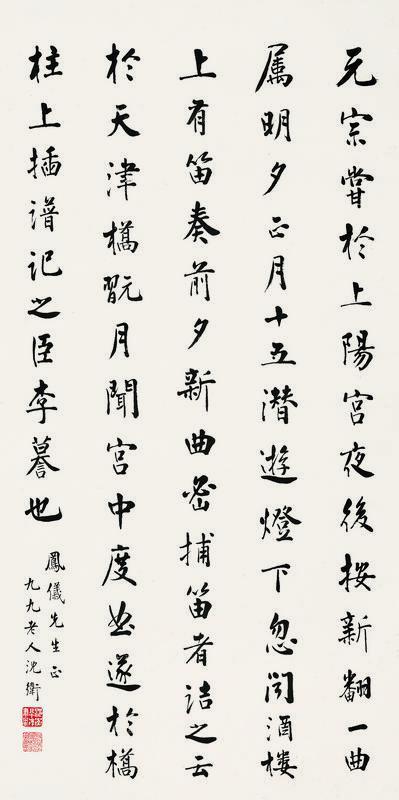 元宗嘗於上陽宮夜後按新翻一曲
属明夕正月十五潛遊燈下忽聞酒樓
上有笛奏前夕新曲密捕笛者詰之云
於天津橋翫月聞宮中度曲遂於橋
柱上插譜記之臣李謩也
鳳儀先生正
九九老人沈衛